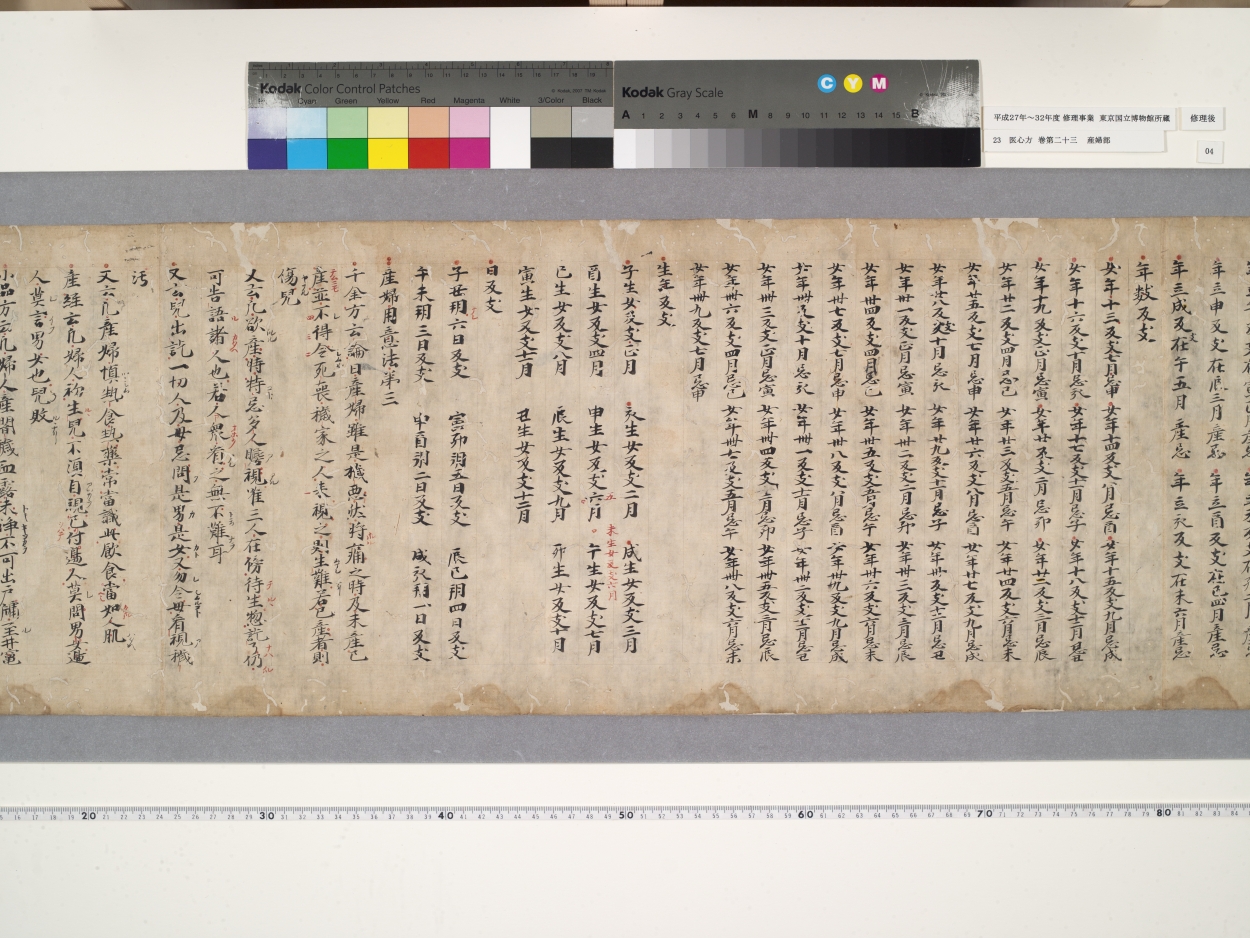 Kodak Color Control Patches
Cyan Green Yellow Red Magenta White 3/Color Black
Kodak Gray Scale
C Y M
A 1 2 3 4 5 6 M 8 9 10 11 12 13 14 15 B
平成27年～32年度 修理事業 東京国立博物館所蔵
修理後
23 医心方 巻第二十三 産婦部
04
年立申反支在辰三月産忌 年立酉反支在巳四月産忌
年立戌反支在午五月産忌 年立亥反支在未六月産忌
年数反支
女年十三反支七月忌申 女年十四反支八月忌酉 女年十五反支九月忌戌
女年十六反支十月忌亥 女年十七反支十一月忌子 女年十八反支十二月忌丑
女年十九反支正月忌寅 女年廿反支二月忌卯 女年廿一反支三月忌辰
女年廿二反支四月忌巳 女年廿三反支五月忌午 女年廿四反支六月忌未
女年廿五反支七月忌申 女年廿六反支八月忌酉 女年廿七反支九月忌戌
女年廿八反支十月忌亥 女年廿九反支十一月忌子 女年卅反支十二月忌丑
女年卅一反支正月忌寅 女年卅二反支二月忌卯 女年卅三反支三月忌辰
女年卅四反支四月忌巳 女年卅五反支五月忌午 女年卅六反支六月忌未
女年卅七反支七月忌申 女年卅八反支八月忌酉 女年卅九反支九月忌戌
女年卌反支十月忌亥 女年卌一反支十一月忌子 女年卌二反支十二月忌丑
女年卌三反支正月忌寅 女年卌四反支二月忌卯 女年卌五反支三月忌辰
女年卌六反支四月忌巳 女年卌七反支五月忌午 女年卌八反支六月忌未
女年卌九反支七月忌申
生年反支
子生女反支正月 亥生女反支二月 戌生女反支三月
酉生女反支四月 申生女反支五月 未生女反支六月 午生女反支七月
巳生女反支八月 辰生女反支九月 卯生女反支十月
寅生女反支十一月 丑生女反支十二月
日反支
子丑朔六日反支 寅卯朔五日反支 辰巳朔四日反支
午未朔三日反支 申酉朔二日反支 戌亥朔一日反支
産婦用意法第三
千金方云論曰産婦雖是穢悪然将痛之時及未産已
産並不得令死喪穢家之人来視之則生難若已産者則
傷児
又云凡欲産時特忌多人瞻視唯三人在傍待生惣訖了仍
可告語諸人也若人衆看之無不難耳
又云児出訖一切人及母忌問是男是女又勿令母看視穢
汚
又云凡産婦慎熱食熱薬常当識此飲食当如人肌
産経云凡婦人初生児不須自視已付邊人莫問男女邊
人莫言男女也児敗
小品方云凡婦人産闇穢血露未浄不可出戸牖至井竈